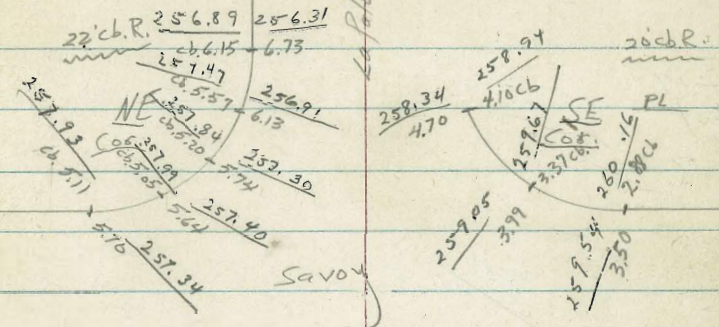 22' cb. R.
256.89
256.31
cb. 6.15
6.73
257.47
cb. 5.57
256.91
6.13
NE
Cor
257.84
cb. 5.20
257.30
5.74
257.99
cb. 5.05
257.40
5.64
257.93
cb. 5.11
257.34
5.70
Savoy
20' cb. R.
258.94
4.10 cb
258.34
4.70
SE
Cor.
259.67
3.37 cb.
259.05
3.99
PL
260.16
2.88 cb
259.54
3.50